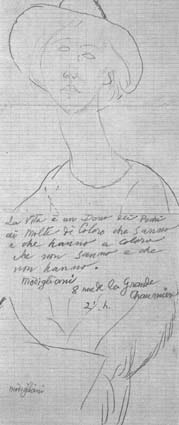 La Vita è un Dono dei Pochi
ai Molti di Coloro che Sanno
e che hanno a coloro
che non Sanno e che
non hanno.
Modigliani
8 rue de la Grande
Chaumière
modigliani